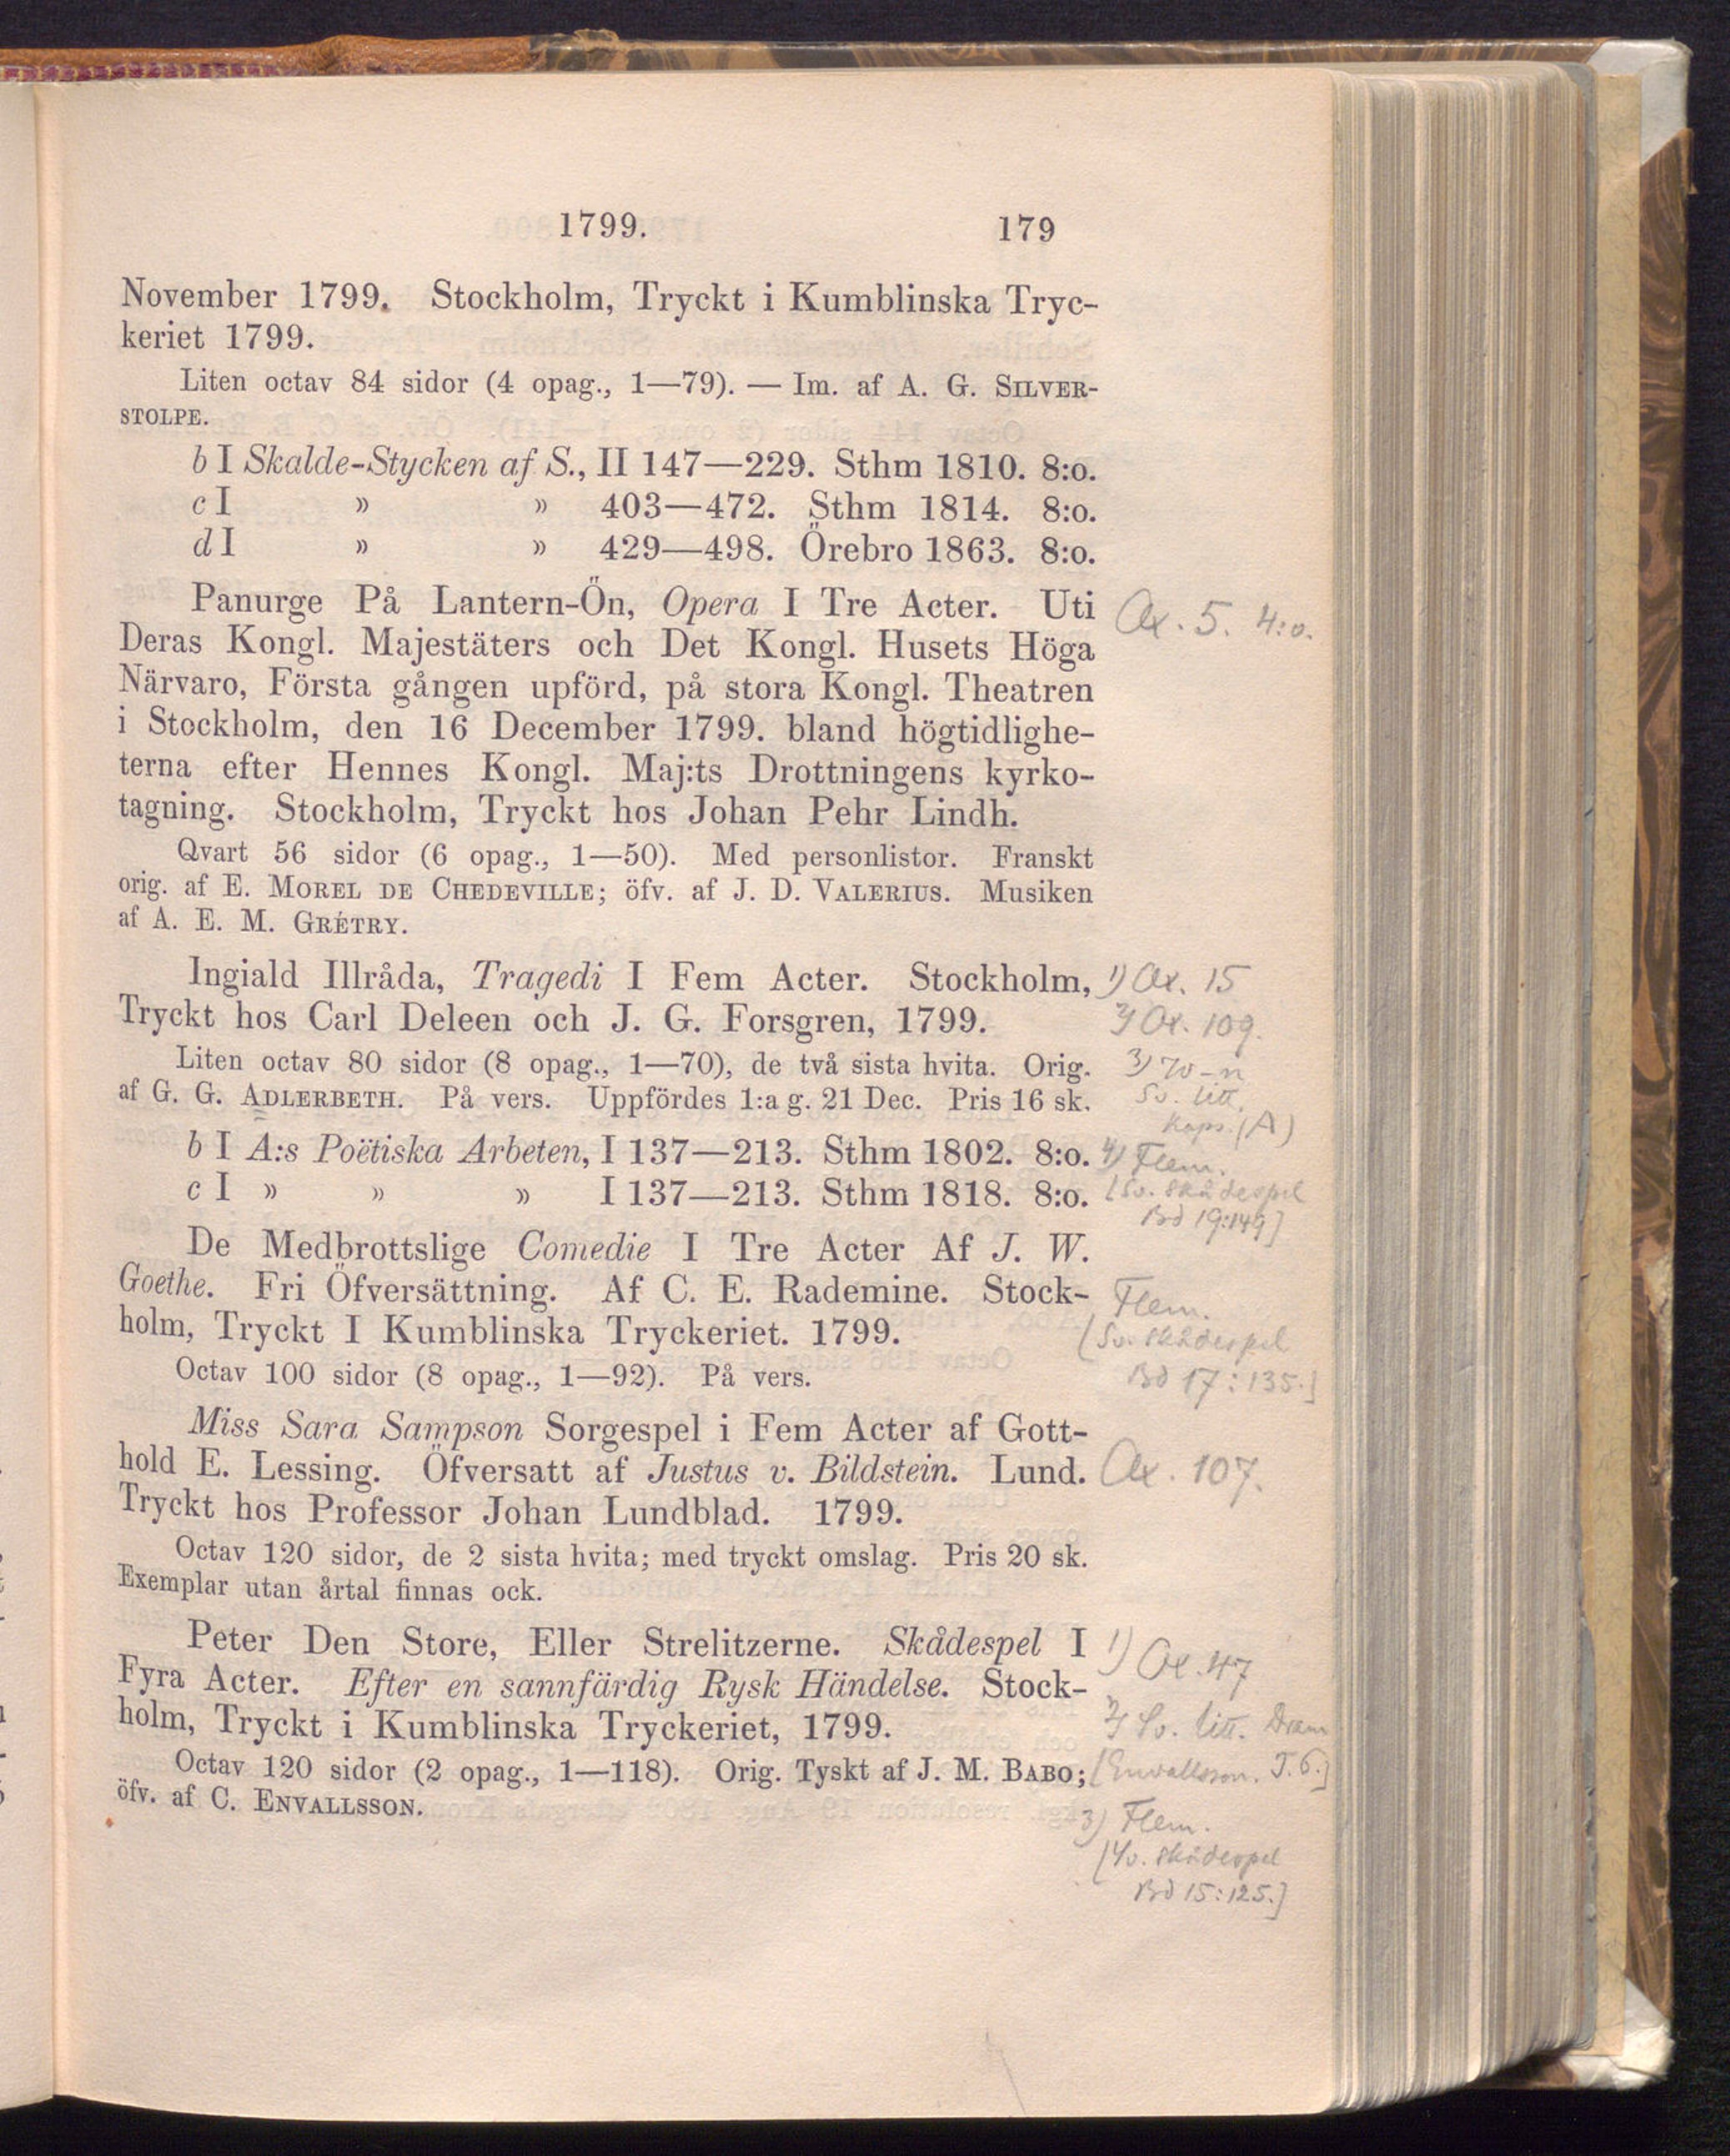 1799. 179
November 1799. Stockholm, Tryckt i Kumblinska Tryc-
keriet 1799.
Liten octav 84 sidor (4 opag., 1—79). — Im. af A. G. SILVER-
STOLPE.
b I Skalde-Stycken af S., II 147—229. Sthm 1810. 8:o.
c I » » 403—472. Sthm 1814. 8:o.
d I » » 429—498. Örebro 1863. 8:o.
Panurge På Lantern-Ön, Opera I Tre Acter. Uti
Ax. 5. 4:o.
Deras Kongl. Majestäters och Det Kongl. Husets Höga
Närvaro, Första gången upförd, på stora Kongl. Theatren
i Stockholm, den 16 December 1799. bland högtidlighe-
terna efter Hennes Kongl. Maj:ts Drottningens kyrko-
tagning. Stockholm, Tryckt hos Johan Pehr Lindh.
Qvart 56 sidor (6 opag., 1—50). Med personlistor. Franskt
orig. af E. MOREL DE CHEDEVILLE; öfv. af J. D. VALERIUS. Musiken
af A. E. M. GRÉTRY.
Ingiald Illråda, Tragedi I Fem Acter. Stockholm,
1) Ax. 15
Tryckt hos Carl Deleen och J. G. Forsgren, 1799.
2) Ax. 109.
Liten octav 80 sidor (8 opag., 1—70), de två sista hvita. Orig.
3)
af G. G. ADLERBETH. På vers. Uppfördes 1:a g. 21 Dec. Pris 16 sk.
Sv. litt.
Kaps. (A)
b I A:s Poëtiska Arbeten, I 137—213. Sthm 1802. 8:o.
4) Flem.
c I » » » I 137—213. Sthm 1818. 8:o.
[Sv. skådespel
Bd 19:149]
De Medbrottslige Comedie I Tre Acter Af J. W.
Goethe. Fri Öfversättning. Af C. E. Rademine. Stock-
Flem.
holm, Tryckt I Kumblinska Tryckeriet. 1799.
[Sv. skådespel
Octav 100 sidor (8 opag., 1—92). På vers.
Bd 17:135.]
Miss Sara Sampson Sorgespel i Fem Acter af Gott-
hold E. Lessing. Öfversatt af Justus v. Bildstein. Lund.
Ax. 107.
Tryckt hos Professor Johan Lundblad. 1799.
Octav 120 sidor, de 2 sista hvita; med tryckt omslag. Pris 20 sk.
Exemplar utan årtal finnas ock.
Peter Den Store, Eller Strelitzerne. Skådespel I
1) Ax. 47
Fyra Acter. Efter en sannfärdig Rysk Händelse. Stock-
holm, Tryckt i Kumblinska Tryckeriet, 1799.
2) Sv. litt. Dram
Octav 120 sidor (2 opag., 1—118). Orig. Tyskt af J. M. BABO;
[Envallsson. T. 6.]
öfv. af C. ENVALLSSON.
3) Flem.
[Sv. skådespel
Bd 15:125.]